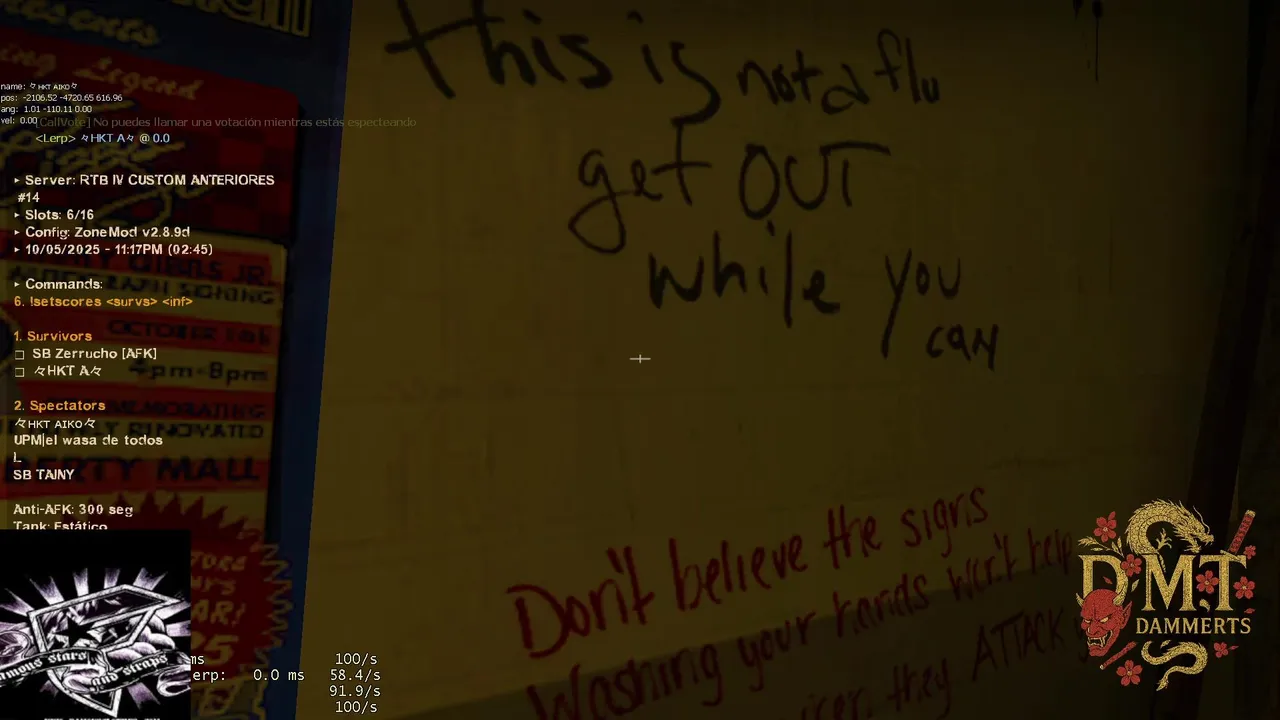 This is not a flu
get OUT
while you
can
Don't believe the signs
Washing your hands won't help
they ATTACK
name: 々ʜᴋᴛ ᴀɪᴋᴏ々
pos: -2106.52 -4720.65 616.96
ang: 1.01 -110.11 0.00
vel: 0.00
[CallVote] No puedes llamar una votación mientras estás especteando
<Lerp> 々HKT A々 @ 0.0
▸ Server: RTB IV CUSTOM ANTERIORES
#14
▸ Slots: 6/16
▸ Config: ZoneMod v2.8.9d
▸ 10/05/2025 - 11:17PM (02:45)
▸ Commands:
6. !setscores <survs> <inf>
1. Survivors
□ SB Zerrucho [AFK]
□ 々HKT A々
2. Spectators
々ʜᴋᴛ ᴀɪᴋᴏ々
UPM|el wasa de todos
L
SB TAINY
Anti-AFK: 300 seg
Tank: Estático
Legend
JR.
SIGNING
OCTOBER
4pm-8pm
RENOVATED
LIBERTY MALL
famous stars and straps
ms 100/s
erp: 0.0 ms 58.4/s
91.9/s
100/s
DMT
DAMMERTS